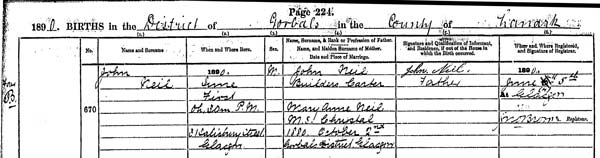 Page 224.
1890. BIRTHS in the District of Gorbals in the County of Lanark
(1.) (2.) (3.) (4.) (5.) (6.)
No. Name and Surname When and Where Born. Sex. Name, Surname, & Rank or Profession of Father. Name, and Maiden Surname of Mother. Date and Place of Marriage. Signature and Qualification of Informant, and Residence, if out of the House in which the Birth occurred. When and Where Registered, and Signature of Registrar.
John 1890. M. John Neil John Neil. 1890.
Neil June Builders Carter Father June 5th
First At Glasgow
670 0h. 30m P.M. Mary Anne Neil
M.S. Chrystal Registrar.
21 Salisbury Street 1880. October 2nd
Glasgow Gorbals District Glasgow